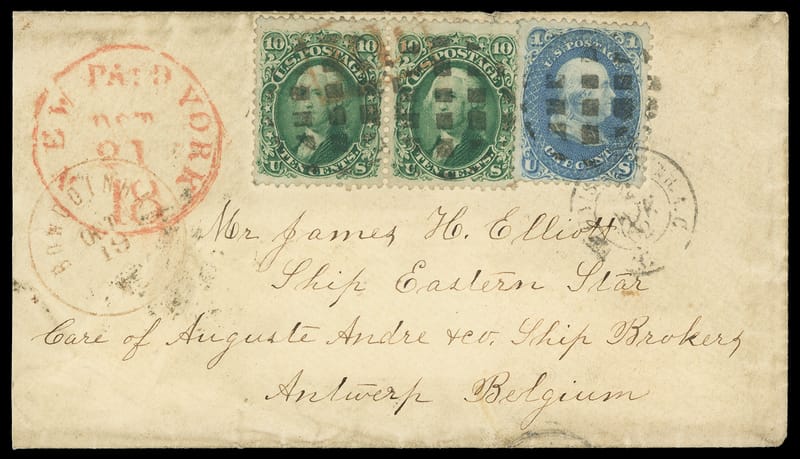 10 10 10 10 1 1
U.S. POSTAGE U.S. POSTAGE U.S. POSTAGE
TEN CENTS. TEN CENTS. ONE CENT.
U S U S U S
NEW YORK
PAID
OCT
21
18
BOWDOIN
OCT
19
Mr James H. Elliott
Ship Eastern Star
Care of Auguste Andre & co. Ship Brokers
Antwerp Belgium